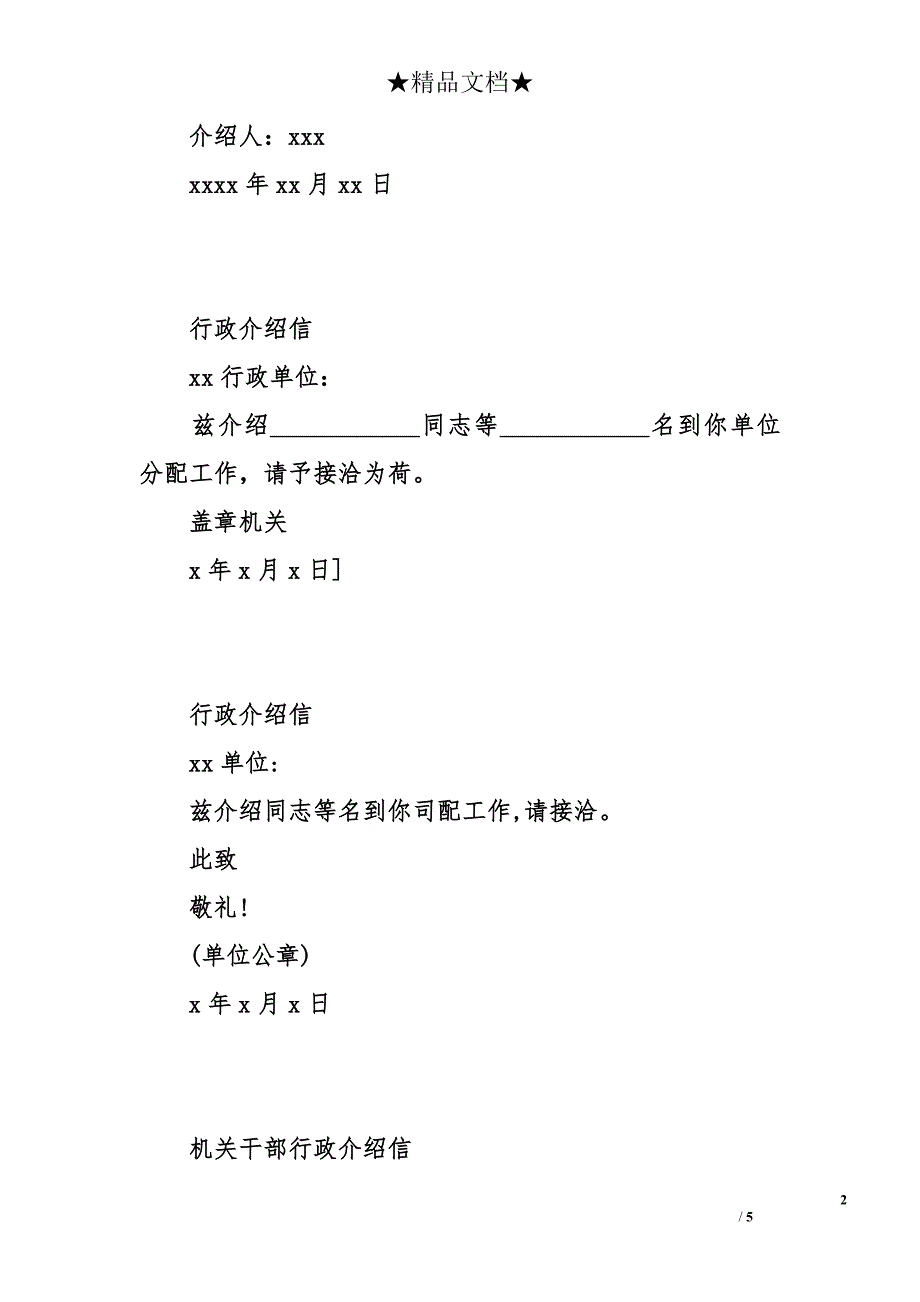 ★精品文档★
介绍人：xxx
xxxx 年 xx 月 xx 日
行政介绍信
xx 行政单位：
兹介绍____________同志等____________名到你单位
分配工作，请予接洽为荷。
盖章机关
x 年 x 月 x 日]
行政介绍信
xx 单位:
兹介绍同志等名到你司配工作,请接洽。
此致
敬礼!
(单位公章)
x 年 x 月 x 日
机关干部行政介绍信
2
/ 5